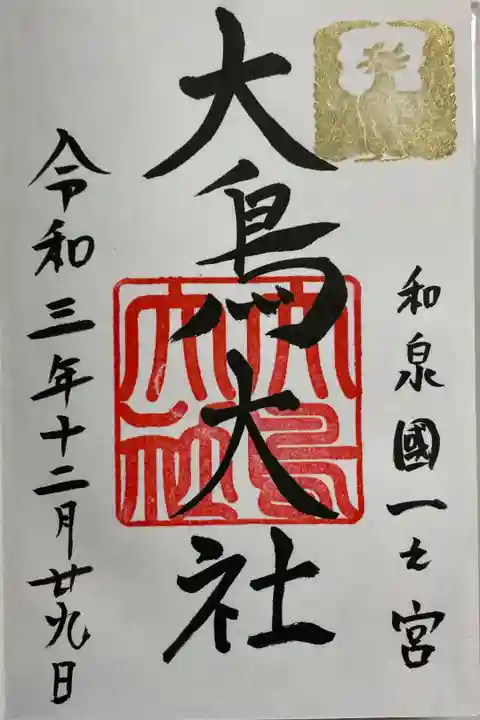 和泉國一之宮
大鳥大社
大鳥
大社
令和三年十二月廿九日